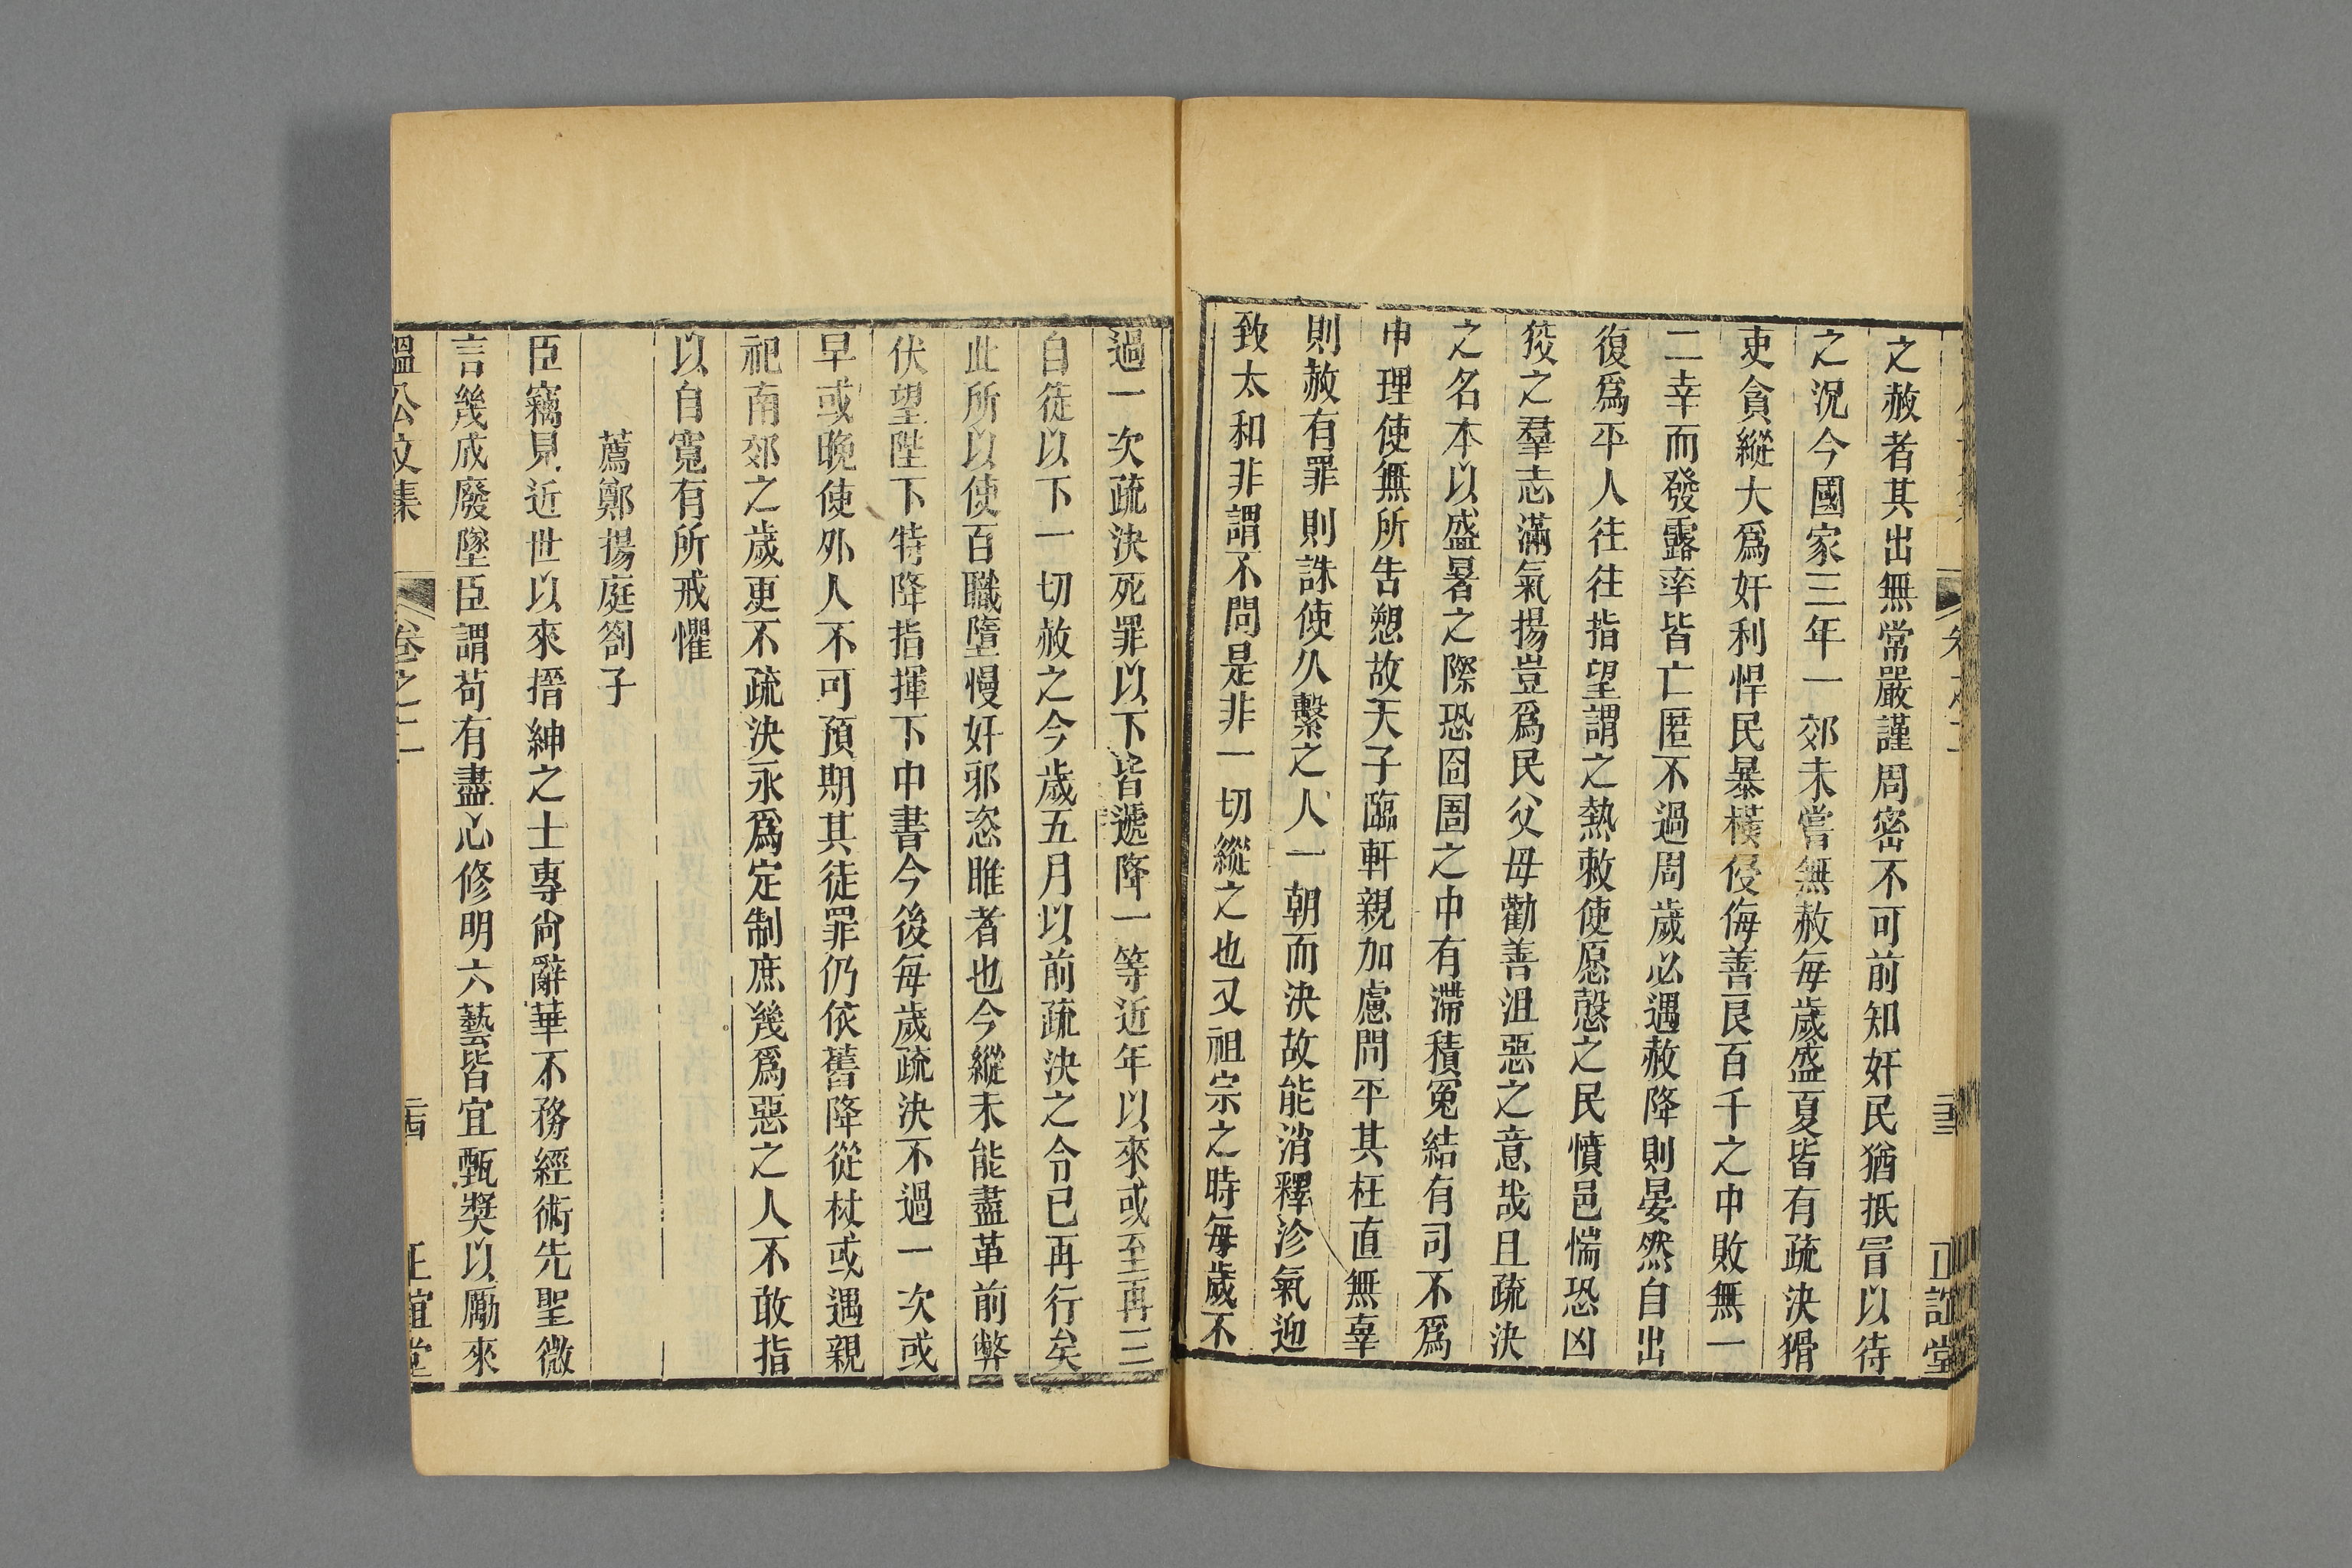 之赦者其出無常嚴謹周密不可前知奸民猶抵冒以待
之況今國家三年一郊未嘗無赦每歲盛夏皆有疏決猾
吏貪縱大爲奸利悍民暴橫侵侮善良百千之中敗無一
二幸而發露率皆亡匿不過周歲必遇赦降則晏然自出
復爲平人往往指望謂之熱敕使愿愨之民憤邑惴恐凶
狡之羣志滿氣揚豈爲民父母勸善沮惡之意哉且疏決
之名本以盛暑之際恐囹圄之中有滯積冤結有司不爲
申理使無所告愬故天子臨軒親加慮問平其枉直無辜
則赦有罪則誅使久繫之人一朝而決故能消釋沴氣迎
致太和非謂不問是非一切縱之也又祖宗之時每歲不
過一次疏決死罪以下皆遞降一等近年以來或至再三
自徒以下一切赦之今歲五月以前疏決之令已再行矣
此所以使百職墮慢奸邪恣睢者也今縱未能盡革前弊
伏望陛下特降指揮下中書今後每歲疏決不過一次或
早或晚使外人不可預期其徒罪仍依舊降從杖或遇親
祀南郊之歲更不疏決永爲定制庶幾爲惡之人不敢指
以自寬有所戒懼
薦鄭揚庭劄子
臣竊見近世以來搢紳之士專尙辭華不務經術先聖微
言幾成廢墜臣謂苟有盡心修明六藝皆宜甄獎以厲來
溫公文集 卷之二 二四 正誼堂